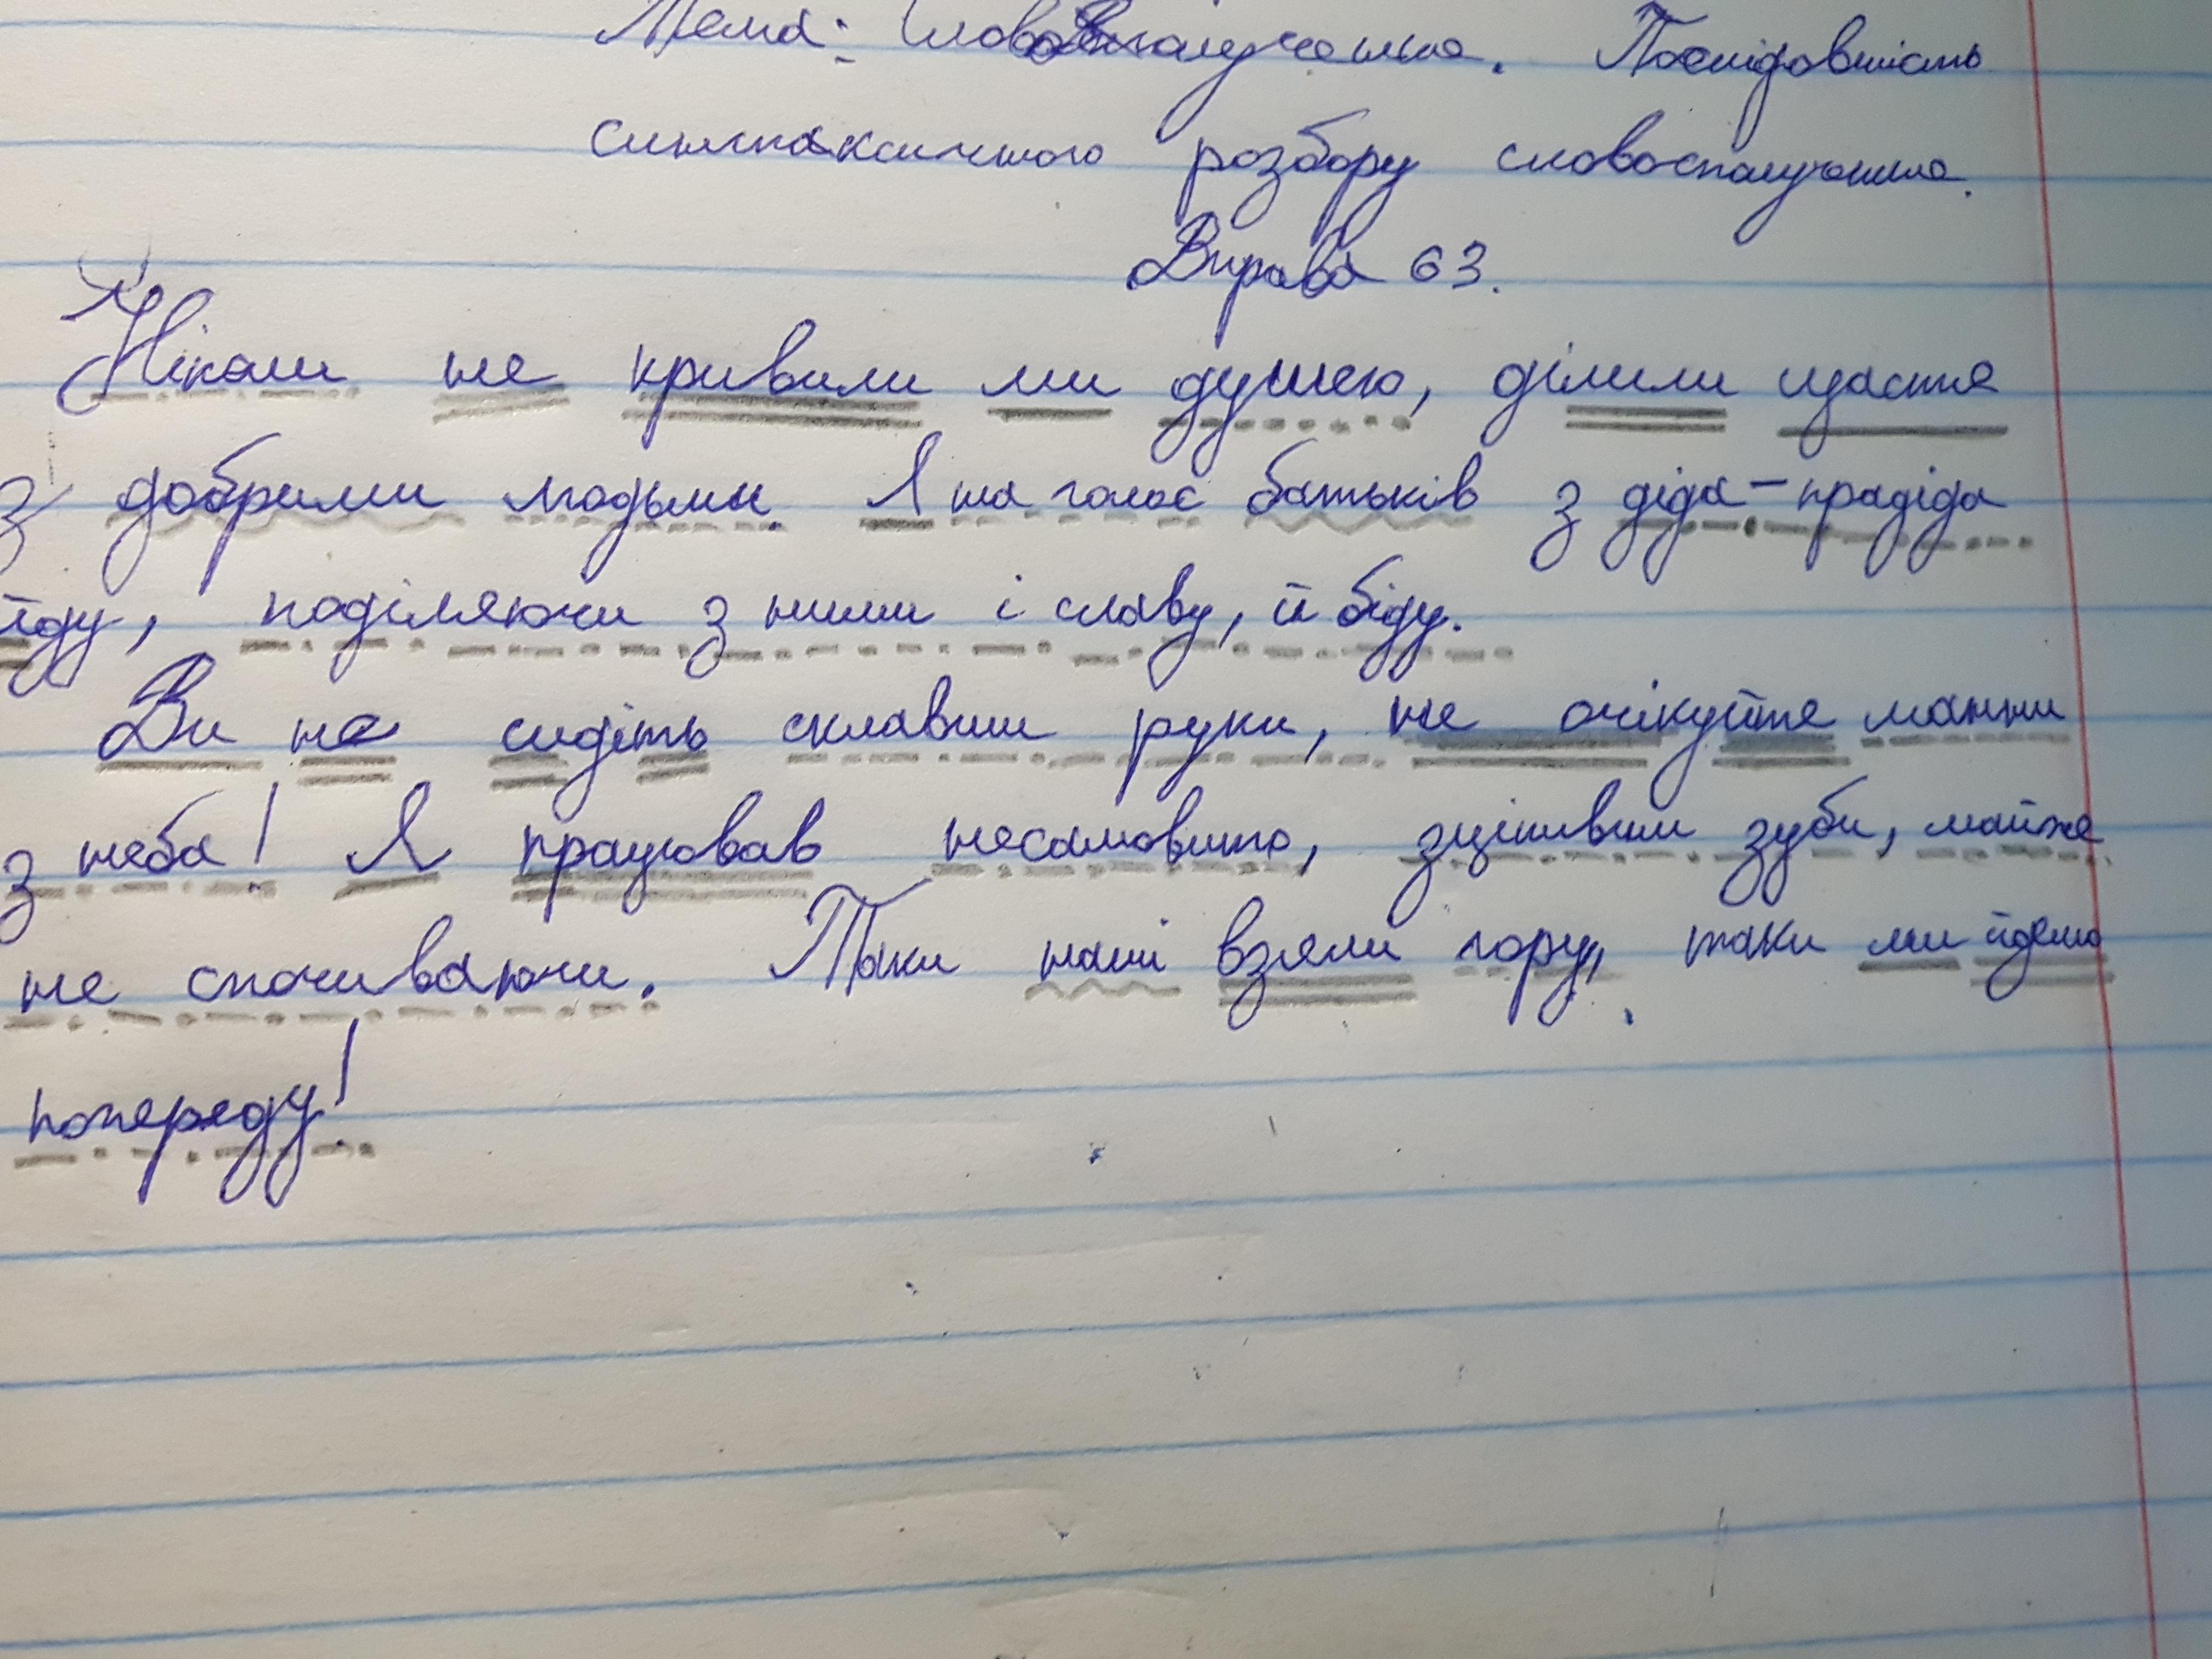 Тема: Словосполучення. Послідовність
синтаксичного розбору словосполучення.
Вправа 63.
Ніколи не кривили ми душею, ділили щастя
з добрими людьми. Я на голос батьків з діда-прадіда
йду, поділяючи з ними і славу, й біду.
Ви не сидіть склавши руки, не очікуйте манни
з неба! Я працював несамовито, зціпивши зуби, майже
не спочиваючи. Таки наші взяли гору, таки ми йдемо
попереду!